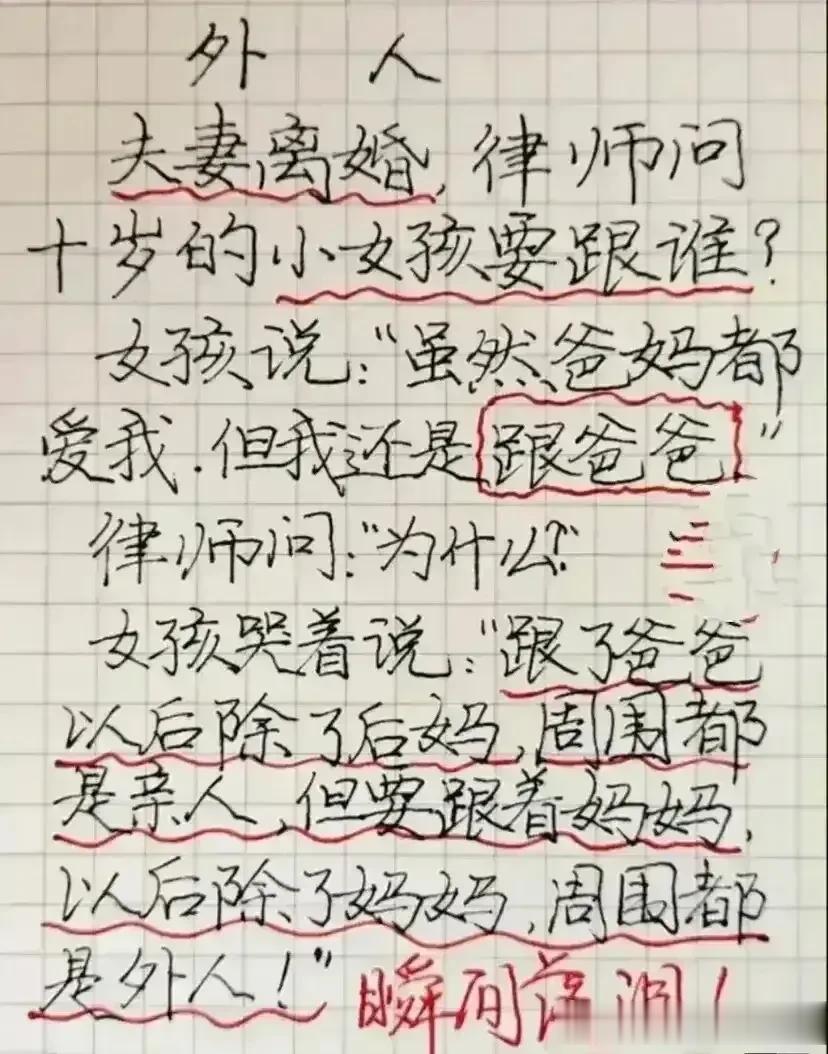 外 人
夫妻离婚,律师问
十岁的小女孩要跟谁?
女孩说:“虽然爸妈都
爱我.但我还是跟爸爸”
律师问:“为什么?”
女孩哭着说:“跟了爸爸
以后除了后妈,周围都
是亲人,但要跟着妈妈,
以后除了妈妈,周围都
是外人!”瞬间落泪!